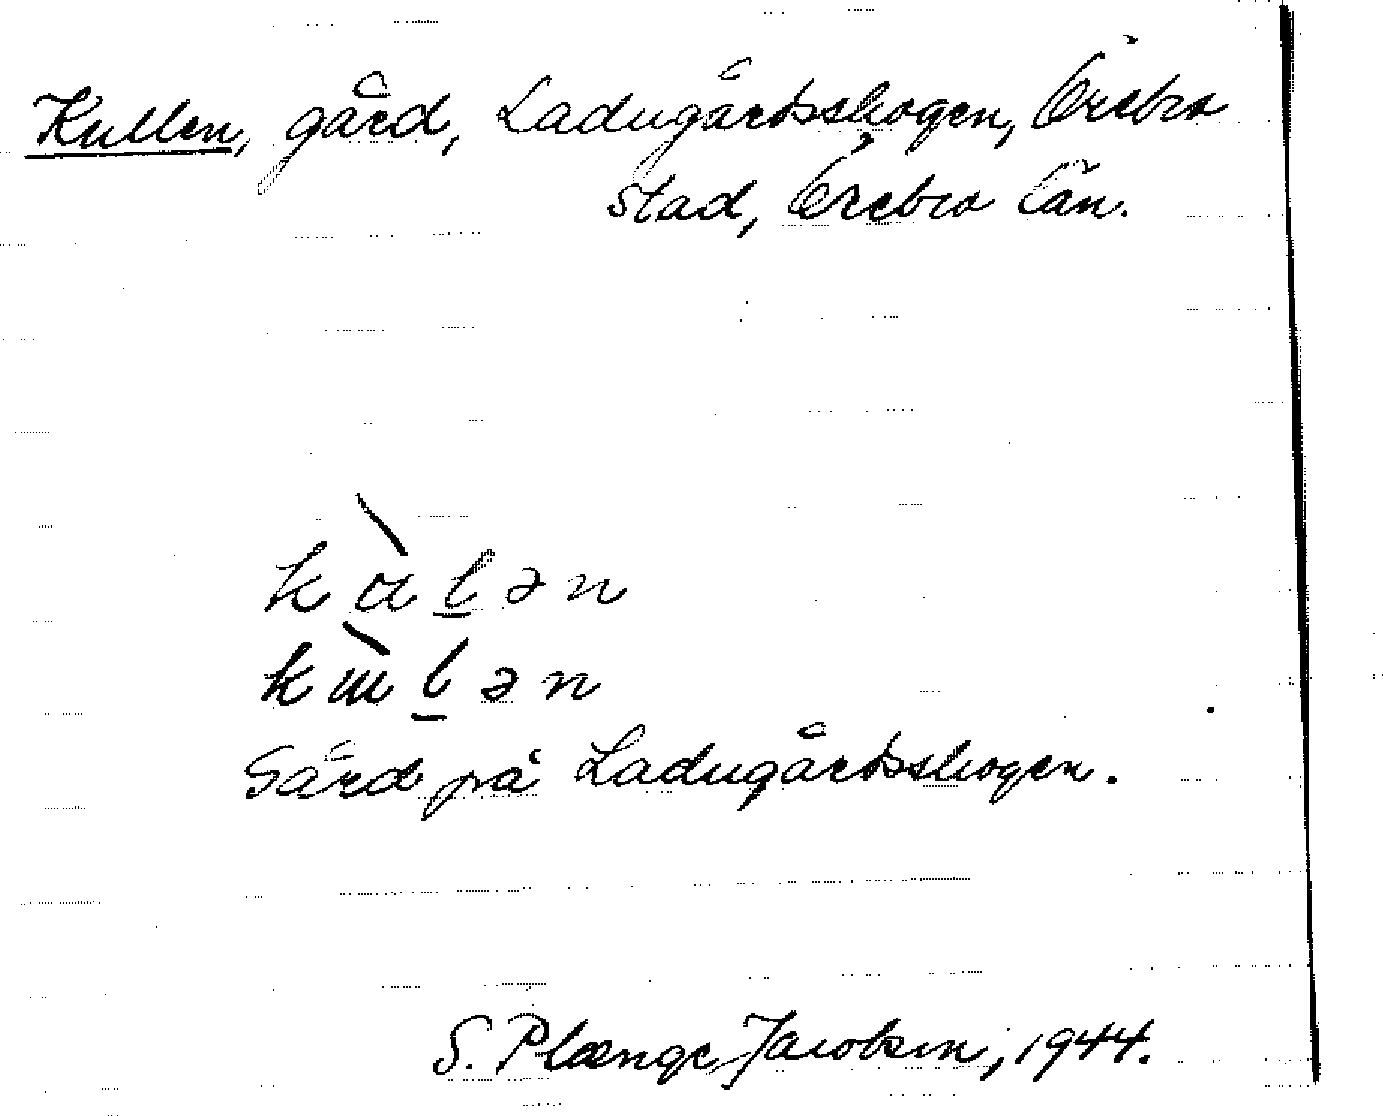 Kullen, gård, Ladugårdsskogen, Örebro
stad, Örebro län.
Gård på Ladugårdsskogen.
S. Plænge Jacobsen, 1944.